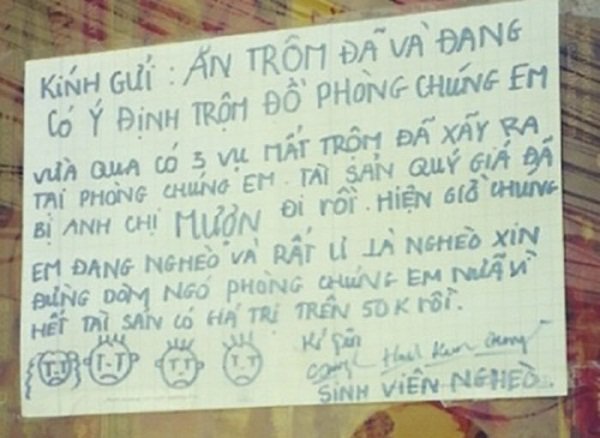 KÍNH GỬI : ĂN TRỘM ĐÃ VÀ ĐANG
CÓ Ý ĐỊNH TRỘM ĐỒ PHÒNG CHÚNG EM
VỪA QUA CÓ 3 VỤ MẤT TRỘM ĐÃ XẨY RA
TẠI PHÒNG CHÚNG EM. TÀI SẢN QUÝ GIÁ ĐÃ
BỊ ANH CHỊ MƯỢN ĐI RỒI. HIỆN GIỜ CHÚNG
EM ĐANG NGHÈO VÀ RẤT LÀ NGHÈO XIN
ĐỪNG DÒM NGÓ PHÒNG CHÚNG EM NỮA VÌ
HẾT TÀI SẢN CÓ GIÁ TRỊ TRÊN 50K RỒI.
T-T T-T T-T T-T
Kí tên
SINH VIÊN NGHÈO.